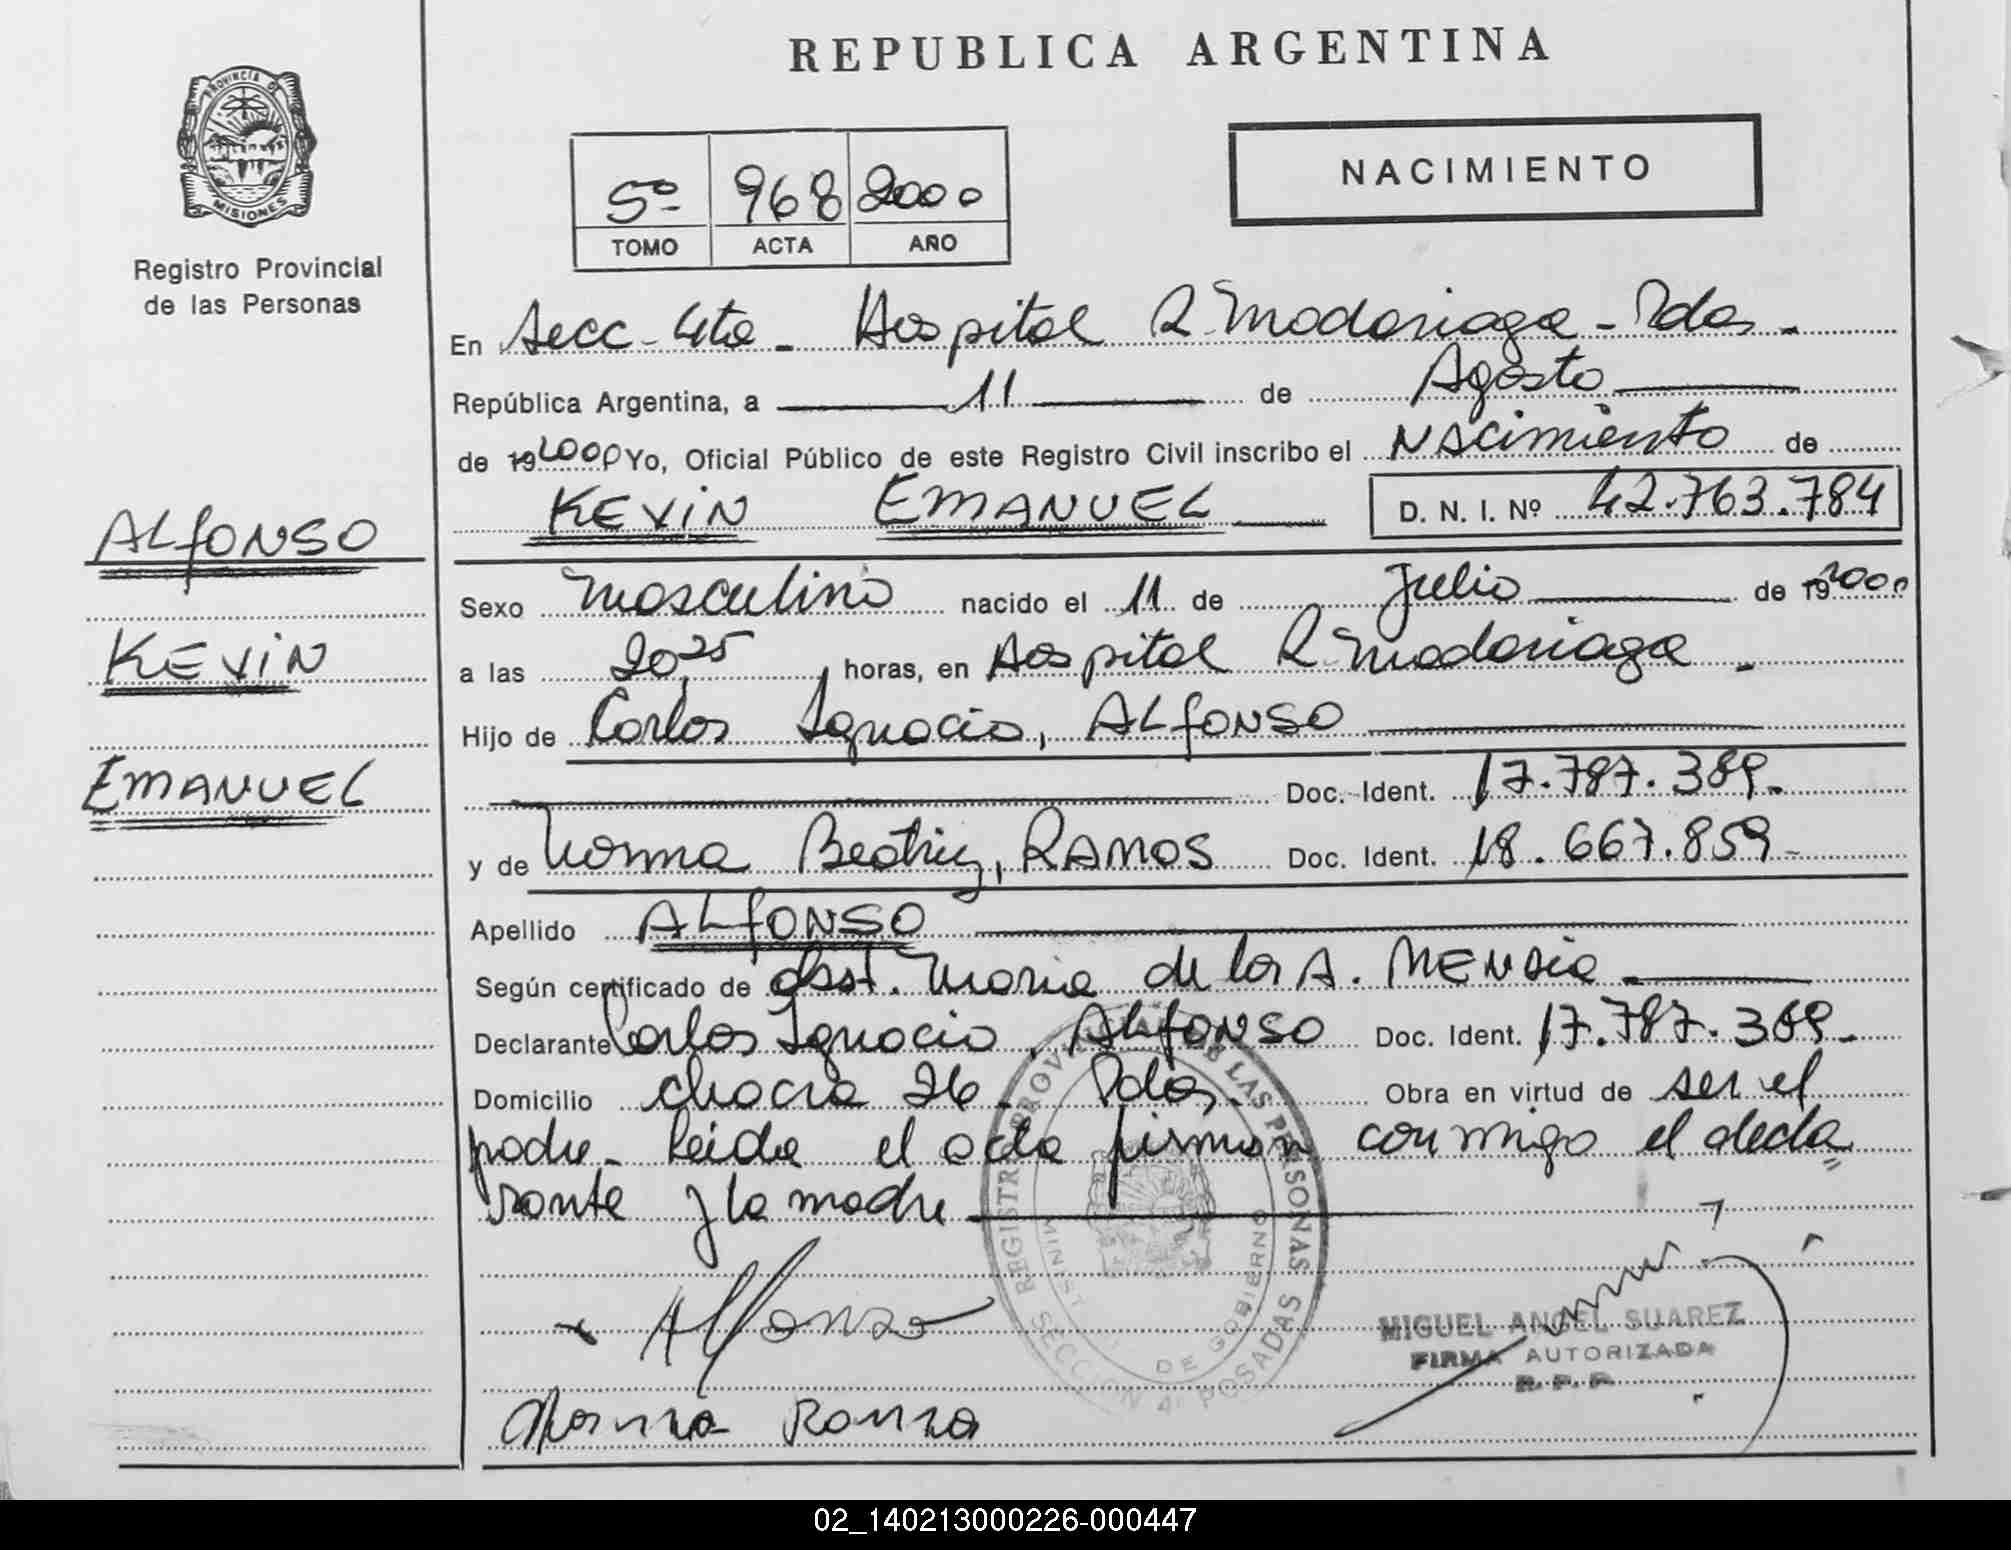 REPUBLICA ARGENTINA
PROVINCIA DE
MISIONES
Registro Provincial
de las Personas
5º 968 2000
TOMO ACTA AÑO
NACIMIENTO
En Secc. 4ta - Hospital R. Madariaga - Pdas.
República Argentina, a 11 de Agosto
de 19 2000 Yo, Oficial Público de este Registro Civil inscribo el Nacimiento de
KEVIN EMANUEL D. N. I. Nº 42.763.784
ALFONSO
KEVIN
EMANUEL
Sexo Masculino nacido el 11 de Julio de 19 2000
a las 20,25 horas, en Hospital R. Madariaga.
Hijo de Carlos Ignacio, ALFONSO
Doc. Ident. 17.787.389.
y de Norma Beatriz, RAMOS Doc. Ident. 18.667.859-
Apellido ALFONSO
Según certificado de Obst. Maria de los A. MENDIA
Declarante Carlos Ignacio, ALFONSO Doc. Ident. 17.787.389.
Domicilio chacra 26 - Pdas. Obra en virtud de ser el
padre - Leida el acta firman conmigo el decla
rante y la madre
REGISTRO PROVINCIAL DE LAS PERSONAS
DE GOBIERNO
SECCION 4ª POSADAS
x Alfonso
Norma
MIGUEL ANGEL SUAREZ
FIRMA AUTORIZADA
R. P. P.
02_140213000226-000447